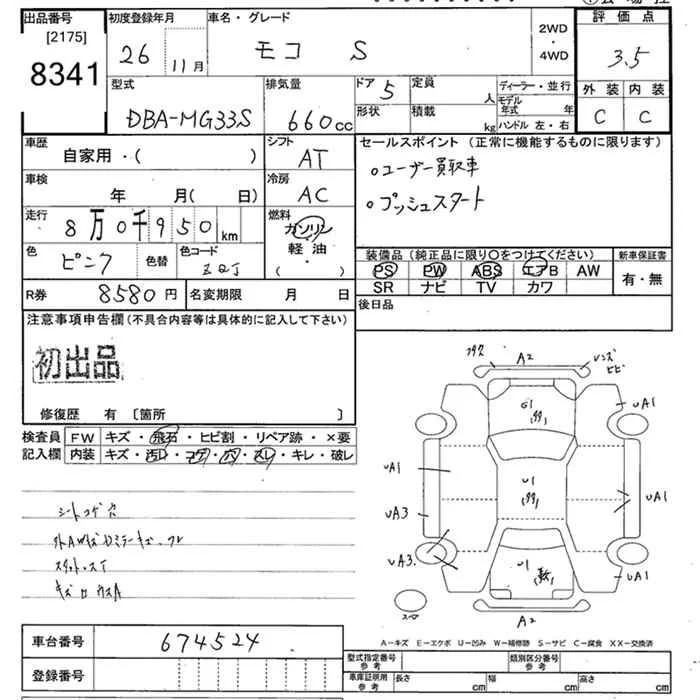 出品番号
[2175]
8341
初度登録年月
26 11月
車名・グレード
モコ S
2WD
・
4WD
評価点
3.5
外装 内装
C C
型式
DBA-MG33S
排気量
660cc
ドア 5
形状
定員 人
積載 kg
ディーラー・並行
モデル年式 年
ハンドル 左・右
車歴
自家用・( )
シフト
AT
車検
年 月( 日)
冷房
AC
走行
8万0千950km
燃料
ガソリン
軽油
・
( )
色
ピンク
色替
色コード
R券 8580円
名変期限 月 日
セールスポイント (正常に機能するものに限ります)
○ユーザー買取車
○プッシュスタート
装備品(純正品に限り〇をつけてください)
PS PW ABS エアB AW
SR ナビ TV カワ
新車保証書
有・無
後日品
注意事項申告欄(不具合内容等は具体的に記入して下さい)
初出品
修復歴 有 〔箇所 〕
検査員
記入欄
FW キズ・飛石・ヒビ割・リペア跡・×要
内装 キズ・汚レ・コゲ・穴・スレ・キレ・破レ
シートコゲ穴
A2
レンズ
ヒビ
UA1
G1
UA1
U1
UA1
UA3
UA3.
U1
UA1
スペア
A2
A－キズ E－エクボ U－凹み W－補修跡 S－サビ C－腐食 XX－交換済
車台番号 674524
登録番号
型式指定番号
参考
類別区分番号
参考
車庫証明用
参考
長さ cm
幅 cm
高さ cm